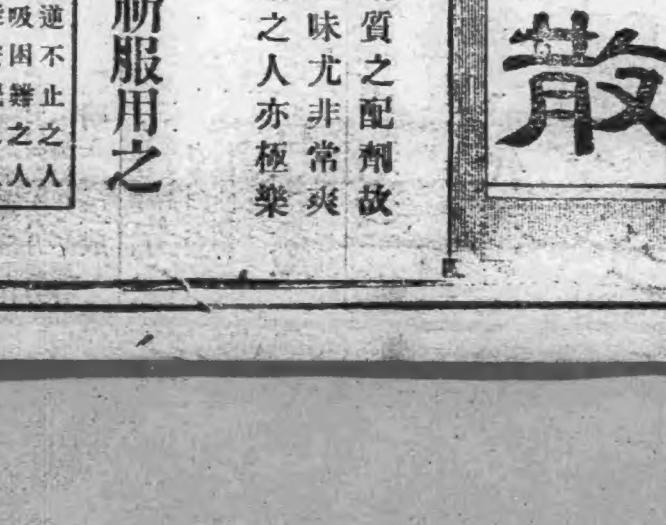 散
質之配劑故
味尤非常爽
之人亦極樂
祈服用之
逆不止之人
吸困難之人